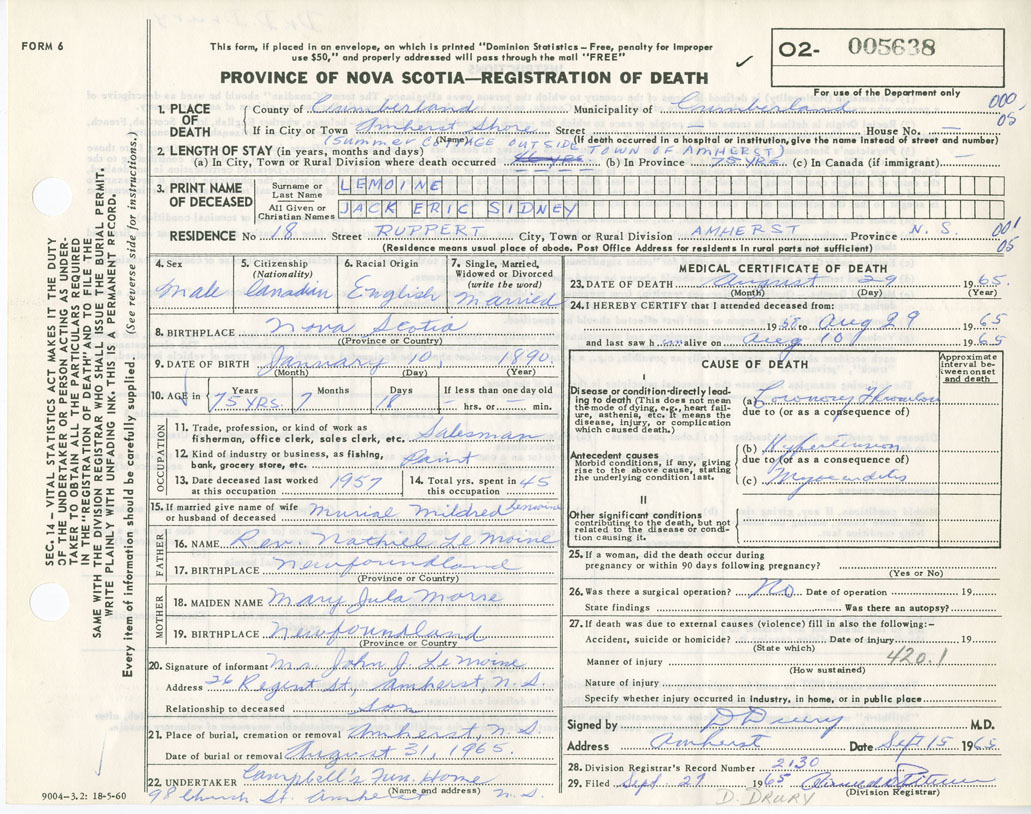 FORM 6
This form, if placed in an envelope, on which is printed "Dominion Statistics – Free, penalty for improper
use $50," and properly addressed will pass through the mail "FREE"
PROVINCE OF NOVA SCOTIA—REGISTRATION OF DEATH
✓
O2- 005638
For use of the Department only
1. PLACE OF DEATH
County of Cumberland Municipality of Cumberland 000 05
If in City or Town Amherst Shore Street — House No. —
(Name) (If death occurred in a hospital or institution, give the name instead of street and number)
(SUMMER COTTAGE OUTSIDE TOWN OF AMHERST)
2. LENGTH OF STAY (in years, months and days)
(a) In City, Town or Rural Division where death occurred (b) In Province 75 YRS. (c) In Canada (if immigrant) —
3. PRINT NAME OF DECEASED
Surname or Last Name LEMOINE
All Given or Christian Names JACK ERIC SIDNEY
RESIDENCE No 18 Street RUPPERT City, Town or Rural Division AMHERST Province N. S. 001 05
(Residence means usual place of abode. Post Office Address for residents in rural parts not sufficient)
4. Sex Male
5. Citizenship (Nationality) Canadian
6. Racial Origin English
7. Single, Married, Widowed or Divorced (write the word) Married
8. BIRTHPLACE Nova Scotia
(Province or Country)
9. DATE OF BIRTH January 10, 1890.
(Month) (Day) (Year)
10. AGE in Years 75 YRS. Months 7 Days 18 If less than one day old — hrs. or — min.
OCCUPATION
11. Trade, profession, or kind of work as
fisherman, office clerk, sales clerk, etc. Salesman
12. Kind of industry or business, as fishing,
bank, grocery store, etc. Paint
13. Date deceased last worked at this occupation 1957
14. Total yrs. spent in this occupation 45
15. If married give name of wife
or husband of deceased Murial Mildred Lemoine
FATHER
16. NAME Rev. Nathiel LeMoine
17. BIRTHPLACE Newfoundland
(Province or Country)
MOTHER
18. MAIDEN NAME Mary Jula Morse
19. BIRTHPLACE Newfoundland
(Province or Country)
20. Signature of informant Mr. John J. LeMoine
Address 26 Regent St., Amherst, N.S.
Relationship to deceased Son
21. Place of burial, cremation or removal Amherst, N.S.
Date of burial or removal August 31, 1965.
22. UNDERTAKER Campbell's Fun. Home
(Name and address)
98 Church St. Amherst N.S.
MEDICAL CERTIFICATE OF DEATH
23. DATE OF DEATH August 29 1965
(Month) (Day) (Year)
24. I HEREBY CERTIFY that I attended deceased from:
19 50 to Aug 29 1965
and last saw h im alive on Aug 10 1965
CAUSE OF DEATH
Approximate interval between onset and death
I
Disease or condition directly leading to death (This does not mean the mode of dying, e.g., heart failure, asthenia, etc. It means the disease, injury, or complication which caused death.)
(a) Coronary Thrombosis
due to (or as a consequence of)
Antecedent causes
Morbid conditions, if any, giving rise to the above cause, stating the underlying condition last.
(b) Hypertension
due to (or as a consequence of)
(c) Myocarditis
II
Other significant conditions
contributing to the death, but not related to the disease or condition causing it.
25. If a woman, did the death occur during
pregnancy or within 90 days following pregnancy?
(Yes or No)
26. Was there a surgical operation? No. Date of operation 19
State findings Was there an autopsy?
27. If death was due to external causes (violence) fill in also the following:–
Accident, suicide or homicide? Date of injury 19
(State which)
420.1
Manner of injury
(How sustained)
Nature of injury
Specify whether injury occurred in industry, in home, or in public place
Signed by D Drury M.D.
Address Amherst Date Sept 15 1965
28. Division Registrar's Record Number 2130
29. Filed Sept 29 1965
(Division Registrar)
D. DRURY
SEC. 14 – VITAL STATISTICS ACT MAKES IT THE DUTY
OF THE UNDERTAKER OR PERSON ACTING AS UNDER-
TAKER TO OBTAIN ALL THE PARTICULARS REQUIRED
IN THE "REGISTRATION OF DEATH" AND TO FILE THE
SAME WITH THE DIVISION REGISTRAR WHO SHALL ISSUE THE BURIAL PERMIT.
WRITE PLAINLY WITH UNFADING INK. THIS IS A PERMANENT RECORD.
Every item of information should be carefully supplied. (See reverse side for instructions.)
9004-3.2: 18-5-60